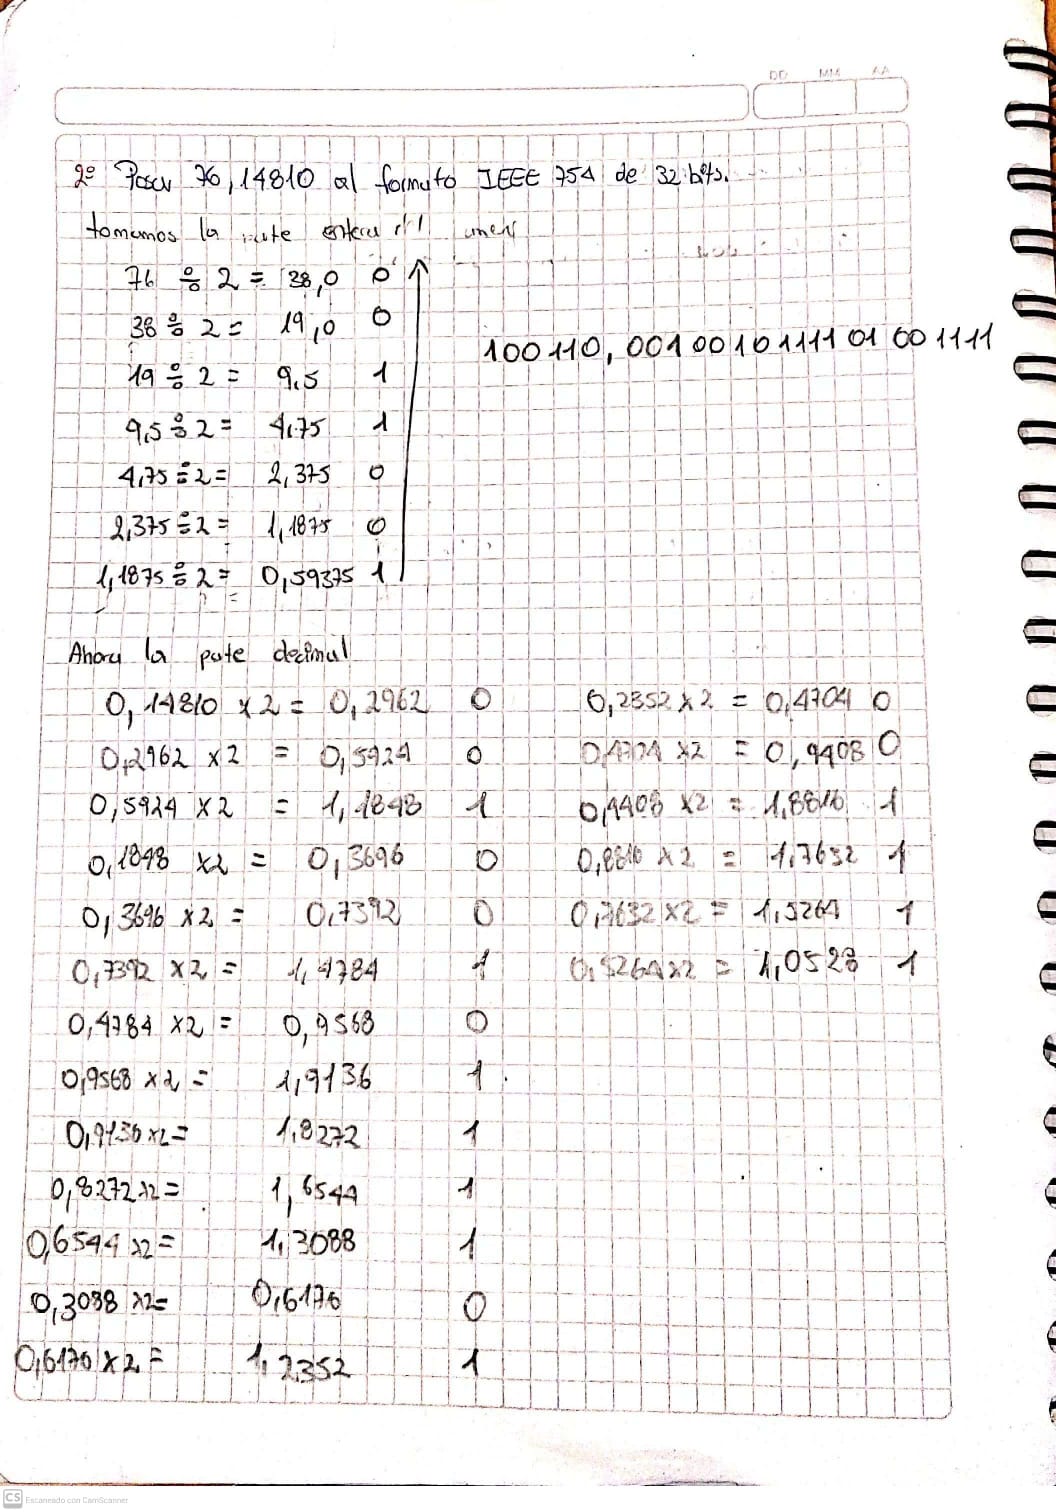 DD MM AA
2º Pasar 76,14810 al formato IEEE 754 de 32 bits.
tomamos la parte entera del
76 ÷ 2 = 38,0 0
38 ÷ 2 = 19,0 0
100110, 00100101111 01 001111
19 ÷ 2 = 9,5 1
9,5 ÷ 2 = 4,75 1
4,75 ÷ 2 = 2,375 0
2,375 ÷ 2 = 1,1875 0
1,1875 ÷ 2 = 0,59375 1
Ahora la parte decimal
0,14810 x 2 = 0,2962 0
0,2962 x2 = 0,5924 0
0,5924 x2 = 1,1848 1
0,1848 x2 = 0,3696 0
0,3696 x2 = 0,7392 0
0,7392 x2 = 1,4784 1
0,4784 x2 = 0,9568 0
0,9568 x2 = 1,9136 1
0,9136 x2= 1,8272 1
0,8272 x2= 1,6544 1
0,6544 x2= 1,3088 1
0,3088 x2= 0,6176 0
0,6176 x2 = 1,2352 1
0,2352 x2 = 0,4704 0
0,4704 x2 = 0,9408 0
0,9408 x2 = 1,8816 1
0,8816 x2 = 1,7632 1
0,7632 x2 = 1,5264 1
0,5264 x2 = 1,0528 1
CS Escaneado con CamScanner